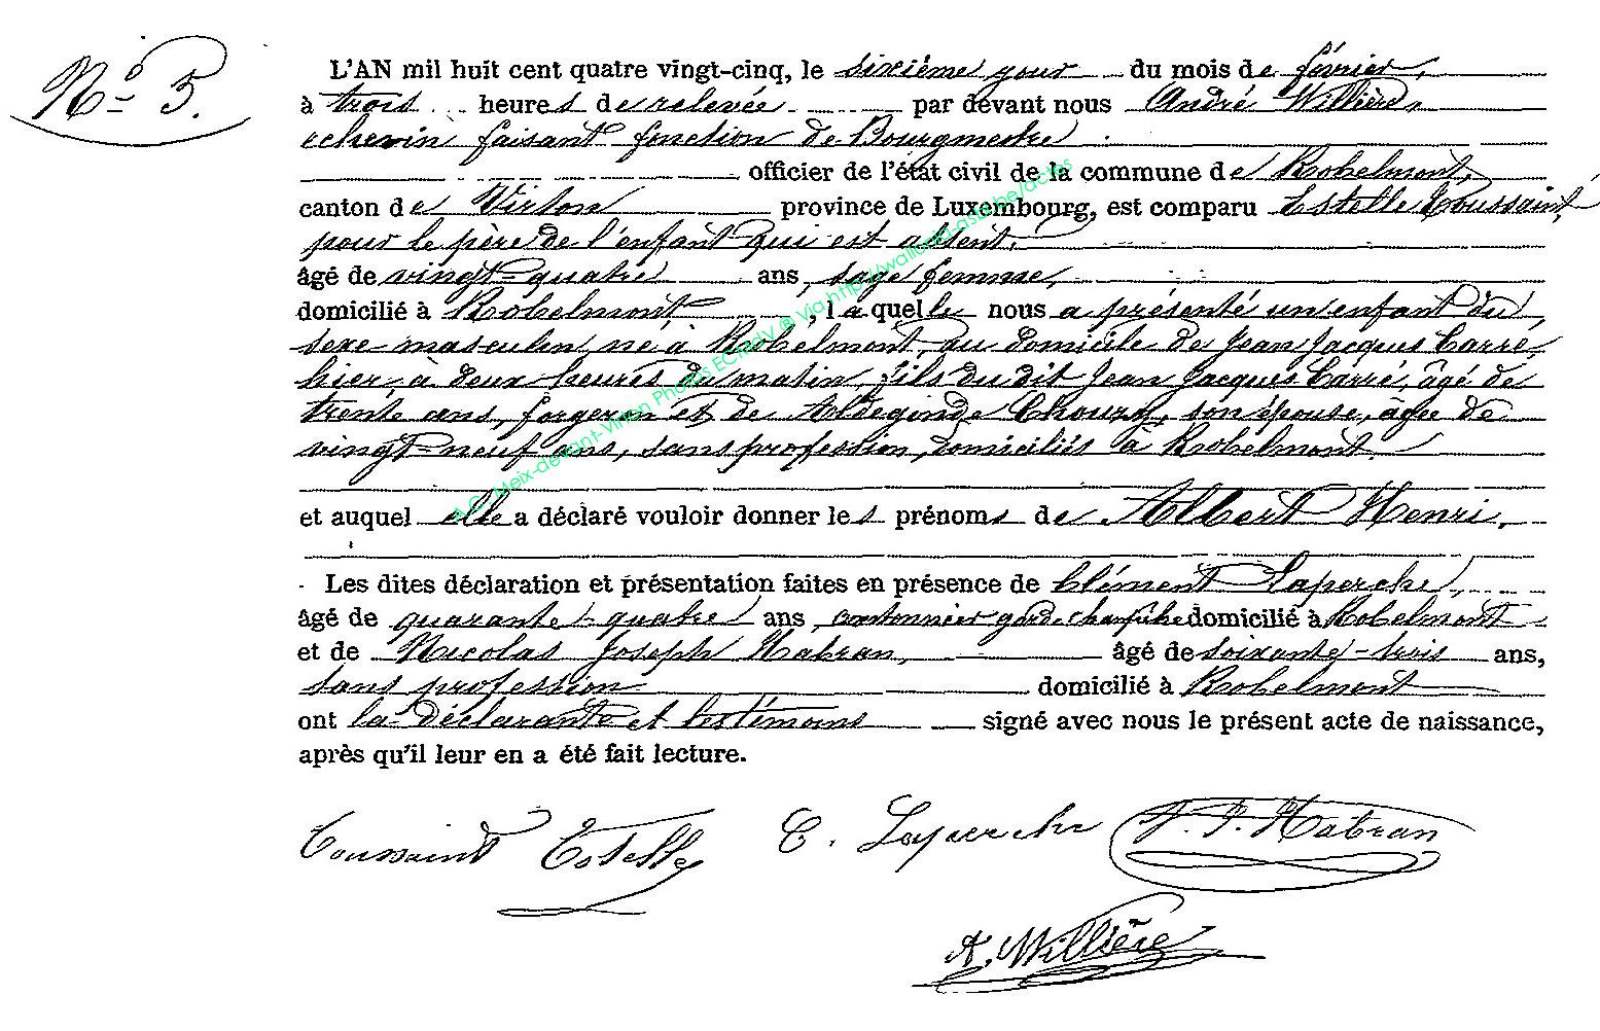 N° 5.
L'AN mil huit cent quatre vingt-cinq, le sixième jour du mois de février,
à trois heures de relevée par devant nous André Willière,
echevin faisant fonction de Bourgmestre
officier de l'état civil de la commune de Robelmont,
canton de Virton province de Luxembourg, est comparu Estelle Toussaint,
pour le père de l'enfant qui est absent,
âgé de vingt-quatre ans, sage femme,
domicilié à Robelmont, laquelle nous a présenté un enfant du
sexe masculin, né à Robelmont, au domicile de Jean Jacques Carré,
hier à deux heures du matin, fils du dit Jean Jacques Carré, âgé de
trente ans, forgeron et de Aldegonde, son épouse, âgée de
vingt-neuf ans, sans profession, domiciliés à Robelmont.
et auquel elle a déclaré vouloir donner les prénoms de Albert Henri.
Les dites déclaration et présentation faites en présence de Clément Laperche,
âgé de quarante-quatre ans, cantonnier garde champêtre domicilié à Robelmont
et de Nicolas Joseph Habran, âgé de soixante-trois ans,
sans profession domicilié à Robelmont
ont la déclarante et les témoins signé avec nous le présent acte de naissance,
après qu'il leur en a été fait lecture.
Toussaint Estelle C. Laperche J. Habran
A. Willière
A.C. Meix-devant-Virton Photos ECMdV @ via http://wallonia-asbl.be/actes